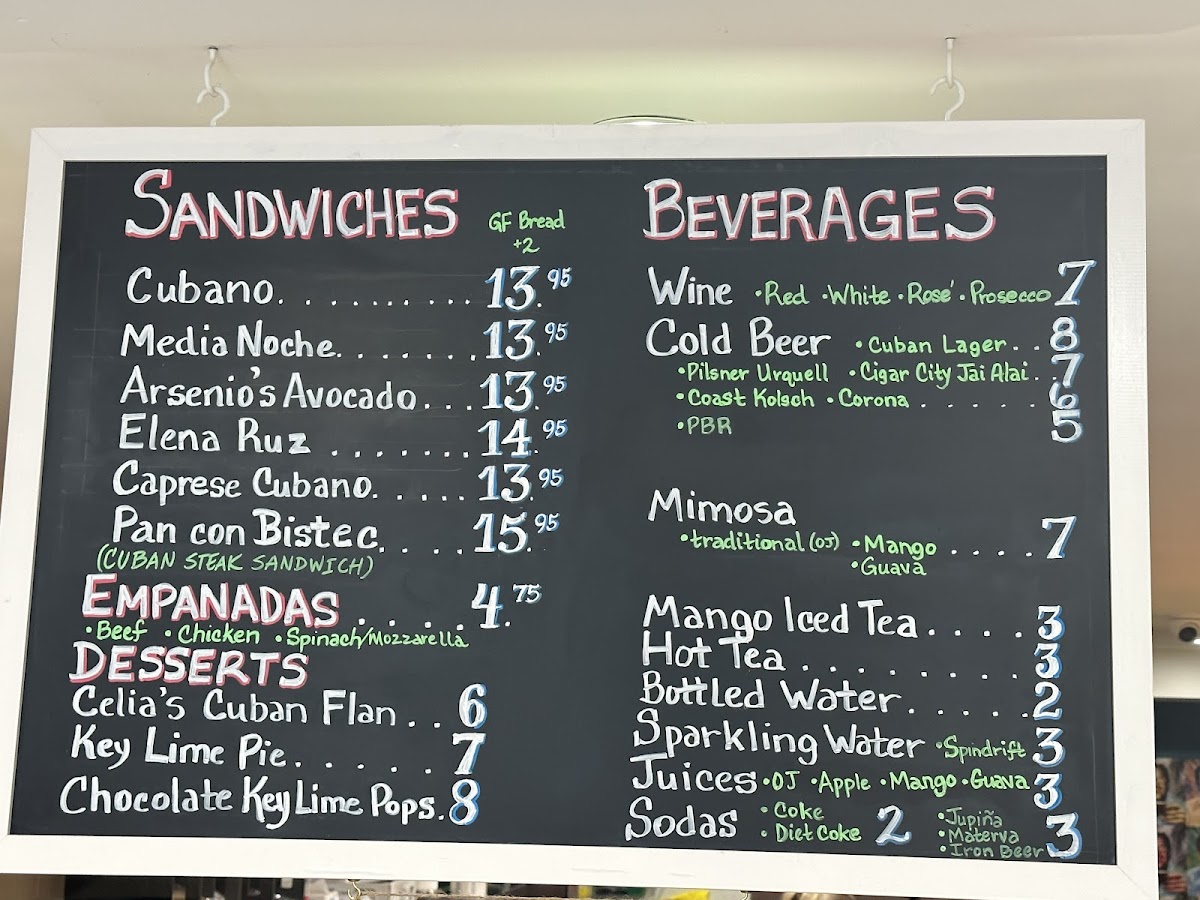 SANDWICHES GF Bread +2
Cubano. . . . . . . . . . 13.95
Media Noche. . . . . . . 13.95
Arsenio's Avocado. . . 13.95
Elena Ruz . . . . . . . 14.95
Caprese Cubano. . . . . 13.95
Pan con Bistec. . . . 15.95
(CUBAN STEAK SANDWICH)
EMPANADAS . . . . . 4.75
•Beef •Chicken •Spinach/Mozzarella
DESSERTS
Celia's Cuban Flan . . 6
Key Lime Pie. . . . . . 7
Chocolate Key Lime Pops. 8
BEVERAGES
Wine •Red •White •Rose' •Prosecco 7
Cold Beer •Cuban Lager. . 8
•Pilsner Urquell •Cigar City Jai Alai . 7
•Coast Kolsch •Corona . . . . . . 6
•PBR 5
Mimosa
•traditional (OJ) •Mango . . . . 7
•Guava
Mango Iced Tea. . . . 3
Hot Tea . . . . . . . 3
Bottled Water. . . . . 2
Sparkling Water •Spindrift 3
Juices •OJ •Apple •Mango •Guava 3
Sodas •Coke •Diet Coke 2 •Jupiña •Materva •Iron Beer 3